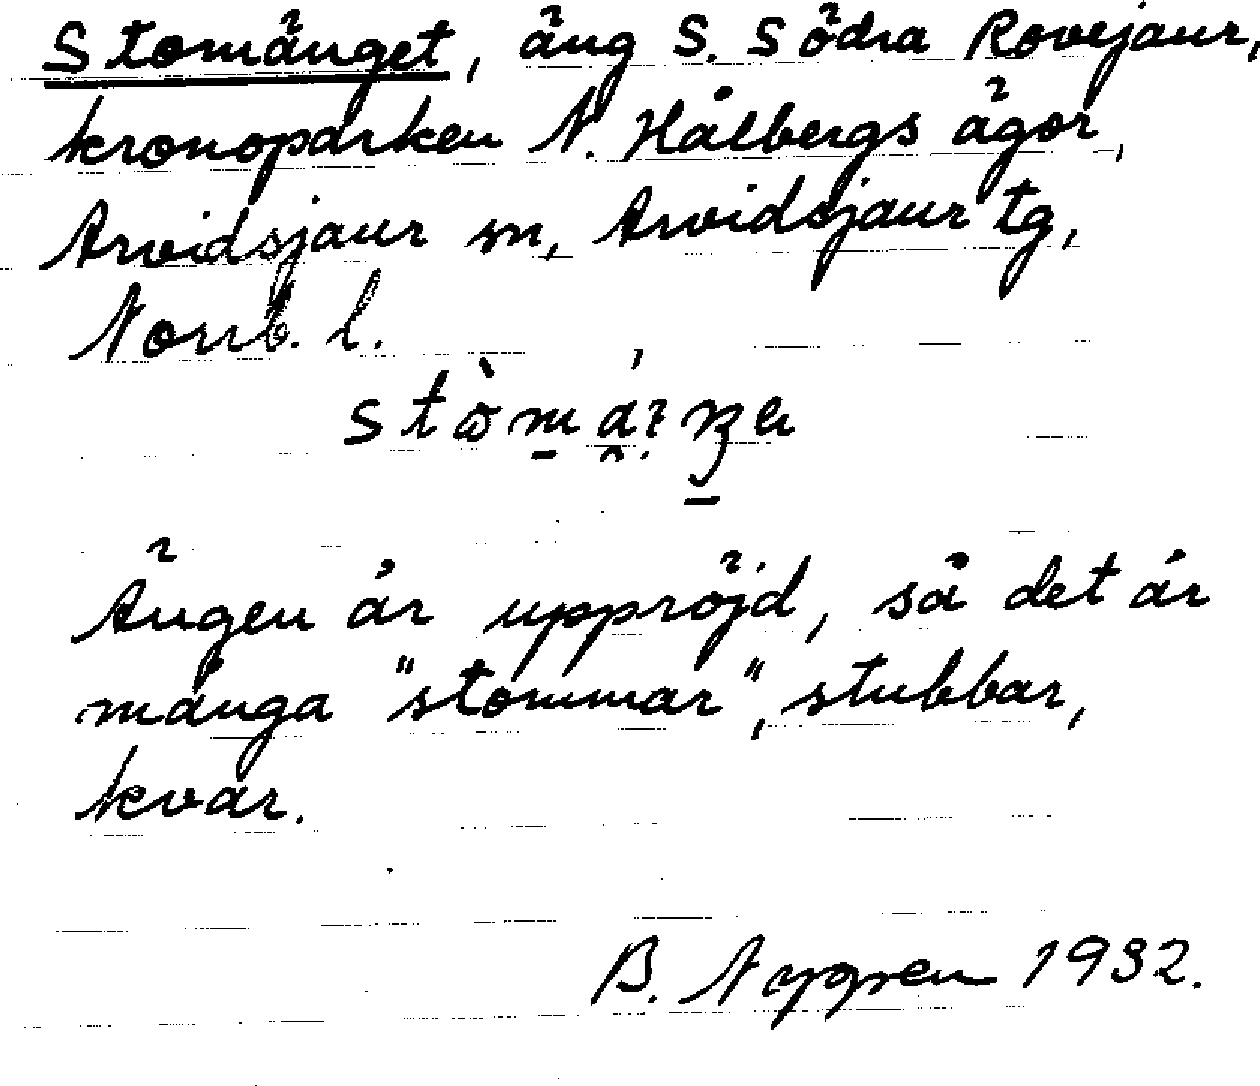 Stomänget, äng S. Södra Rovejaur,
kronoparken N. Hålbergs ägor,
Arvidsjaur sn, Arvidsjaur tg,
Norrb. l.
Ängen är uppröjd, så det är
många "stommar", stubbar,
kvar.
B. Nygren 1932.